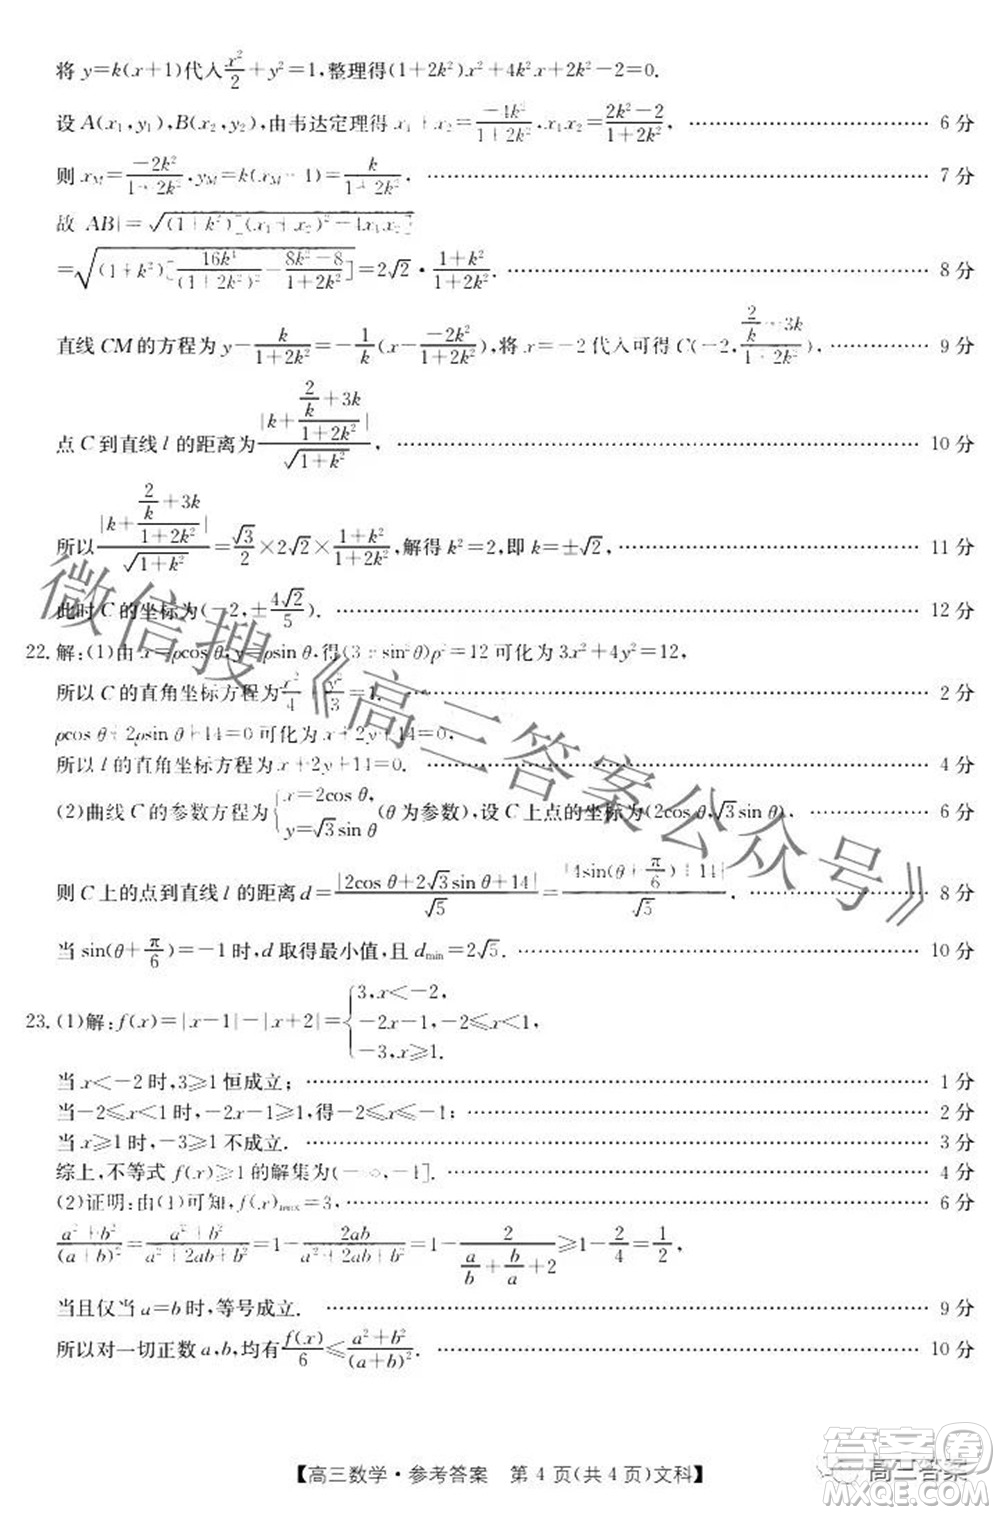 将 y=k(x+1)代入x²/2+y²=1,整理得(1+2k²)x²+4k²x+2k²-2=0.
设 A(x₁,y₁),B(x₂,y₂),由韦达定理得 x₁+x₂=-4k²/(1+2k²),x₁x₂=(2k²-2)/(1+2k²), …… 6 分
则 x_M=-2k²/(1+2k²),y_M=k(x_M+1)=k/(1+2k²), …… 7 分
故|AB|=√((1+k²)[(x₁+x₂)²-4x₁x₂])
=√((1+k²)[16k⁴/(1+2k²)²-(8k²-8)/(1+2k²)])=2√2·(1+k²)/(1+2k²). …… 8 分
直线 CM 的方程为 y-k/(1+2k²)=-1/k(x-(-2k²)/(1+2k²)),将 x=-2 代入可得 C(-2,(2/k+3k)/(1+2k²)), …… 9 分
点 C 到直线 l 的距离为|k+(2/k+3k)/(1+2k²)|/√(1+k²), …… 10 分
所以|k+(2/k+3k)/(1+2k²)|/√(1+k²)=√3/2×2√2×(1+k²)/(1+2k²),解得 k²=2,即 k=±√2, …… 11 分
此时 C 的坐标为(-2,±4√2/5). …… 12 分
22. 解:(1)由 x=ρcos θ,y=ρsin θ,得(3+sin²θ)ρ²=12 可化为 3x²+4y²=12,
所以 C 的直角坐标方程为x²/4+y²/3=1. …… 2 分
ρcos θ+2ρsin θ+14=0 可化为 x+2y+14=0,
所以 l 的直角坐标方程为 x+2y+14=0. …… 4 分
(2)曲线 C 的参数方程为{x=2cos θ, y=√3sin θ (θ为参数),设 C 上点的坐标为(2cos θ,√3sin θ), …… 6 分
则 C 上的点到直线 l 的距离 d=|2cos θ+2√3sin θ+14|/√5=|4sin(θ+π/6)+14|/√5. …… 8 分
当 sin(θ+π/6)=-1 时,d 取得最小值,且 d_min=2√5. …… 10 分
23. (1)解:f(x)=|x-1|-|x+2|={3,x<-2, -2x-1,-2≤x<1, -3,x≥1.
当 x<-2 时,3≥1 恒成立; …… 1 分
当-2≤x<1 时,-2x-1≥1,得-2≤x≤-1; …… 2 分
当 x≥1 时,-3≥1 不成立. …… 3 分
综上,不等式 f(x)≥1 的解集为(-∞,-1]. …… 4 分
(2)证明:由(1)可知,f(x)_max=3, …… 6 分
(a²+b²)/(a+b)²=(a²+b²)/(a²+2ab+b²)=1-2ab/(a²+2ab+b²)=1-2/(a/b+b/a+2)≥1-2/4=1/2,
当且仅当 a=b 时,等号成立. …… 9 分
所以对一切正数 a,b,均有f(x)/6≤(a²+b²)/(a+b)². …… 10 分
【高三数学·参考答案 第 4 页(共 4 页)文科】
微信搜《高三答案公众号》
高三答案
答案圈
MXQE.COM